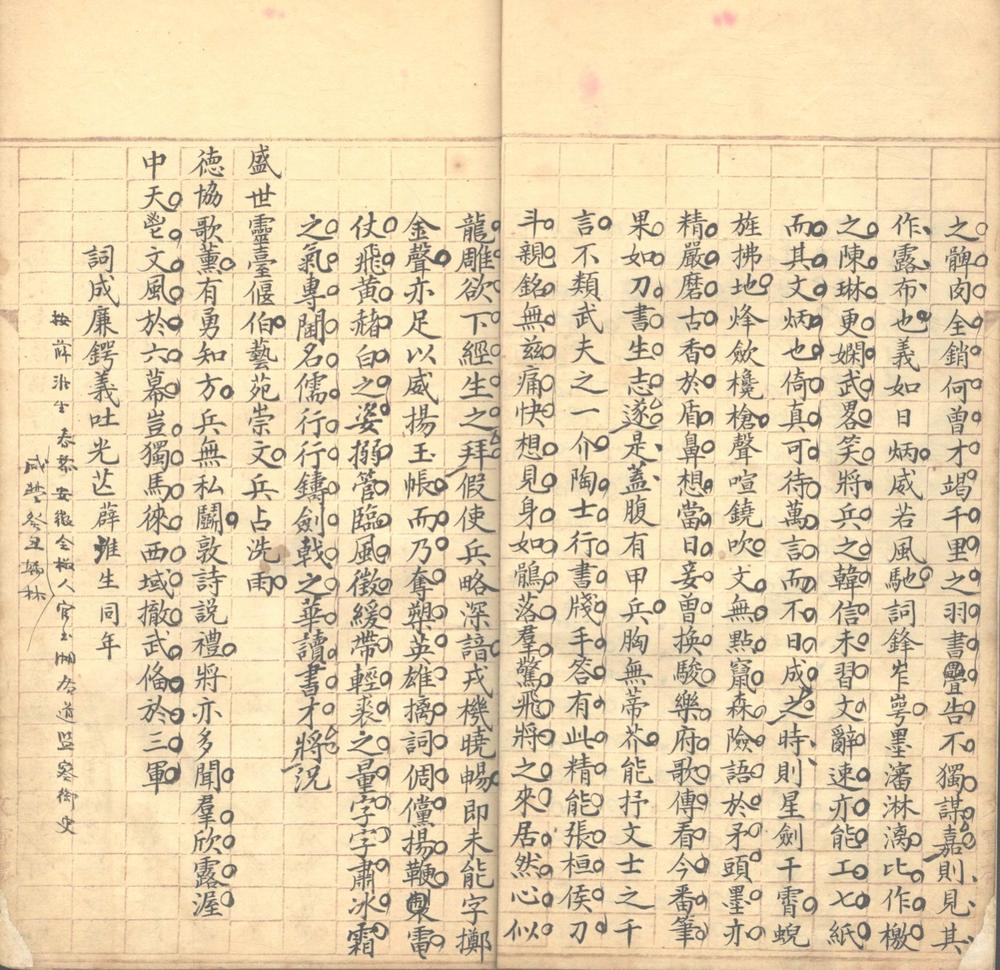 之髀肉全銷何曾才竭千里之羽書疊告不獨謀嘉則見其
作露布也義如日炳威若風馳詞鋒岝崿墨瀋淋漓比作檄
之陳琳更嫻武畧笑將兵之韓信未習文辭速亦能工七紙
而其文炳也倚真可待萬言而不日成之時則星劍干霄蜺
旌拂地烽斂欃槍聲喧鐃吹文無點竄森險語於矛頭墨亦
精嚴磨古香於盾鼻想當日妾曾換駿樂府歌傳看今番筆
果如刀書生志遂是蓋腹有甲兵胸無蒂芥能抒文士之千
言不類武夫之一介陶士行書牋手答有此精能張桓侯刁
斗親銘無兹痛快想見身如鶻落羣驚飛將之來居然心似
龍雕欲下經生之拜假使兵略深諳戎機曉暢即未能字擲
金聲亦足以威揚玉帳而乃奪槊英雄摛詞倜儻揚鞭掣電
仗飛黃赭白之姿搦管臨風徵緩帶輕裘之量字字肅冰霜
之氣專閫名儒行行鑄劍戟之華讀書才將況
盛世靈臺偃伯藝苑崇文兵占洗雨
德協歌薰有勇知方兵無私鬭敦詩説禮將亦多聞羣欣露渥
中天鬯文風於六幕豈獨馬徠西域撤武俻於三軍
詞成廉鍔義吐光芒薛淮生同年
按薛淮生 春黎安徽全椒人官至湖廣道監察御史
咸豐癸丑翰林